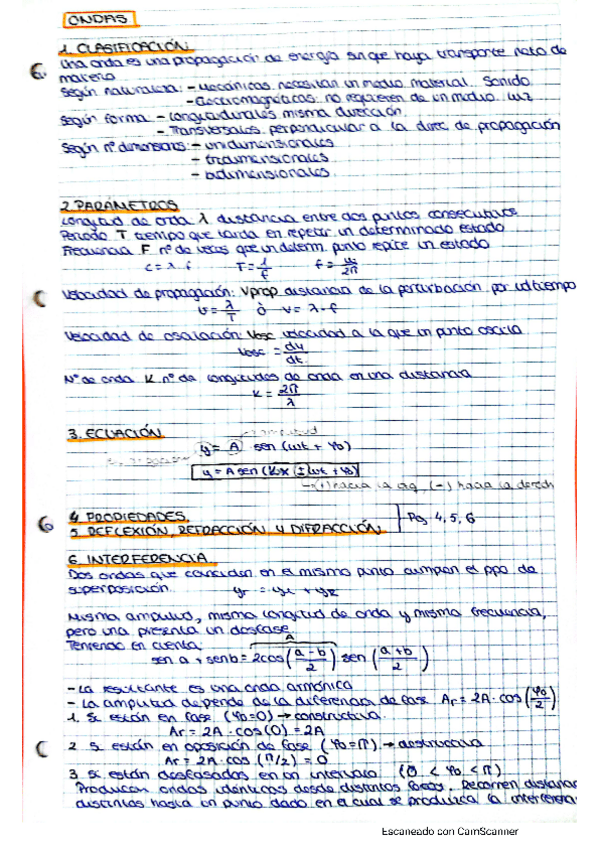 ONDAS
1. CLASIFICACIÓN
Una onda es una propagación de energía sin que haya transporte neto de
materia
Según naturaleza: - Mecánicas necesitan un medio material. Sonido
- Electromagnéticas: no requieren de un medio. Luz
Según forma: - Longitudinales misma dirección
- Transversales perpendicular a la direc de propagación
Según nº dimensions: - unidimensionales
- tridimensionales
- bidimensionales.
2. PARÁMETROS
Longitud de onda λ distancia entre dos puntos consecutivos
Periodo T tiempo que tarda en repetir un determinado estado
Frecuencia F nº de veces que un determ. punto repite un estado
c = λ · f T = 1/f f = ω/2π
Velocidad de propagación: Vprop distancia de la perturbación por ud tiempo
v = λ/T ó v = λ · f
Velocidad de oscilación: Vosc velocidad a la que un punto oscila
Vosc = dy/dt
Nº de onda K nº de longitudes de onda en una distancia
K = 2π/λ
3. ECUACIÓN
amplitud
y = A sen (ωt + φo)
y = A sen (Kx (±) ωt + φo)
(+) hacia la izq, (-) hacia la derech
4. PROPIEDADES
5. REFLEXIÓN, REFRACCIÓN Y DIFRACCIÓN
Pág 4, 5, 6
6. INTERFERENCIA
Dos ondas que coinciden en el mismo punto cumplen el ppo de
superposición. yr = y1 + y2
Misma amplitud, misma longitud de onda y misma frecuencia,
pero una presenta un desfase
Teniendo en cuenta: A
sen a + sen b = 2cos((a - b)/2) sen((a + b)/2)
- La resultante es una onda armónica
- La amplitud depende de la diferencia de fase Ar = 2A · cos(φo/2)
1. Si están en fase (φo = 0) → constructiva
Ar = 2A · cos(0) = 2A
2 Si están en oposición de fase (φo = π) → destructiva
Ar = 2A · cos (π/2) = 0
3 si están desfasados en un intervalo (0 < φo < π)
Producen ondas idénticas desde distintos focos. Recorren distancias
distintas hasta un punto dado en el cual se produzca la interferencia
Escaneado con CamScanner